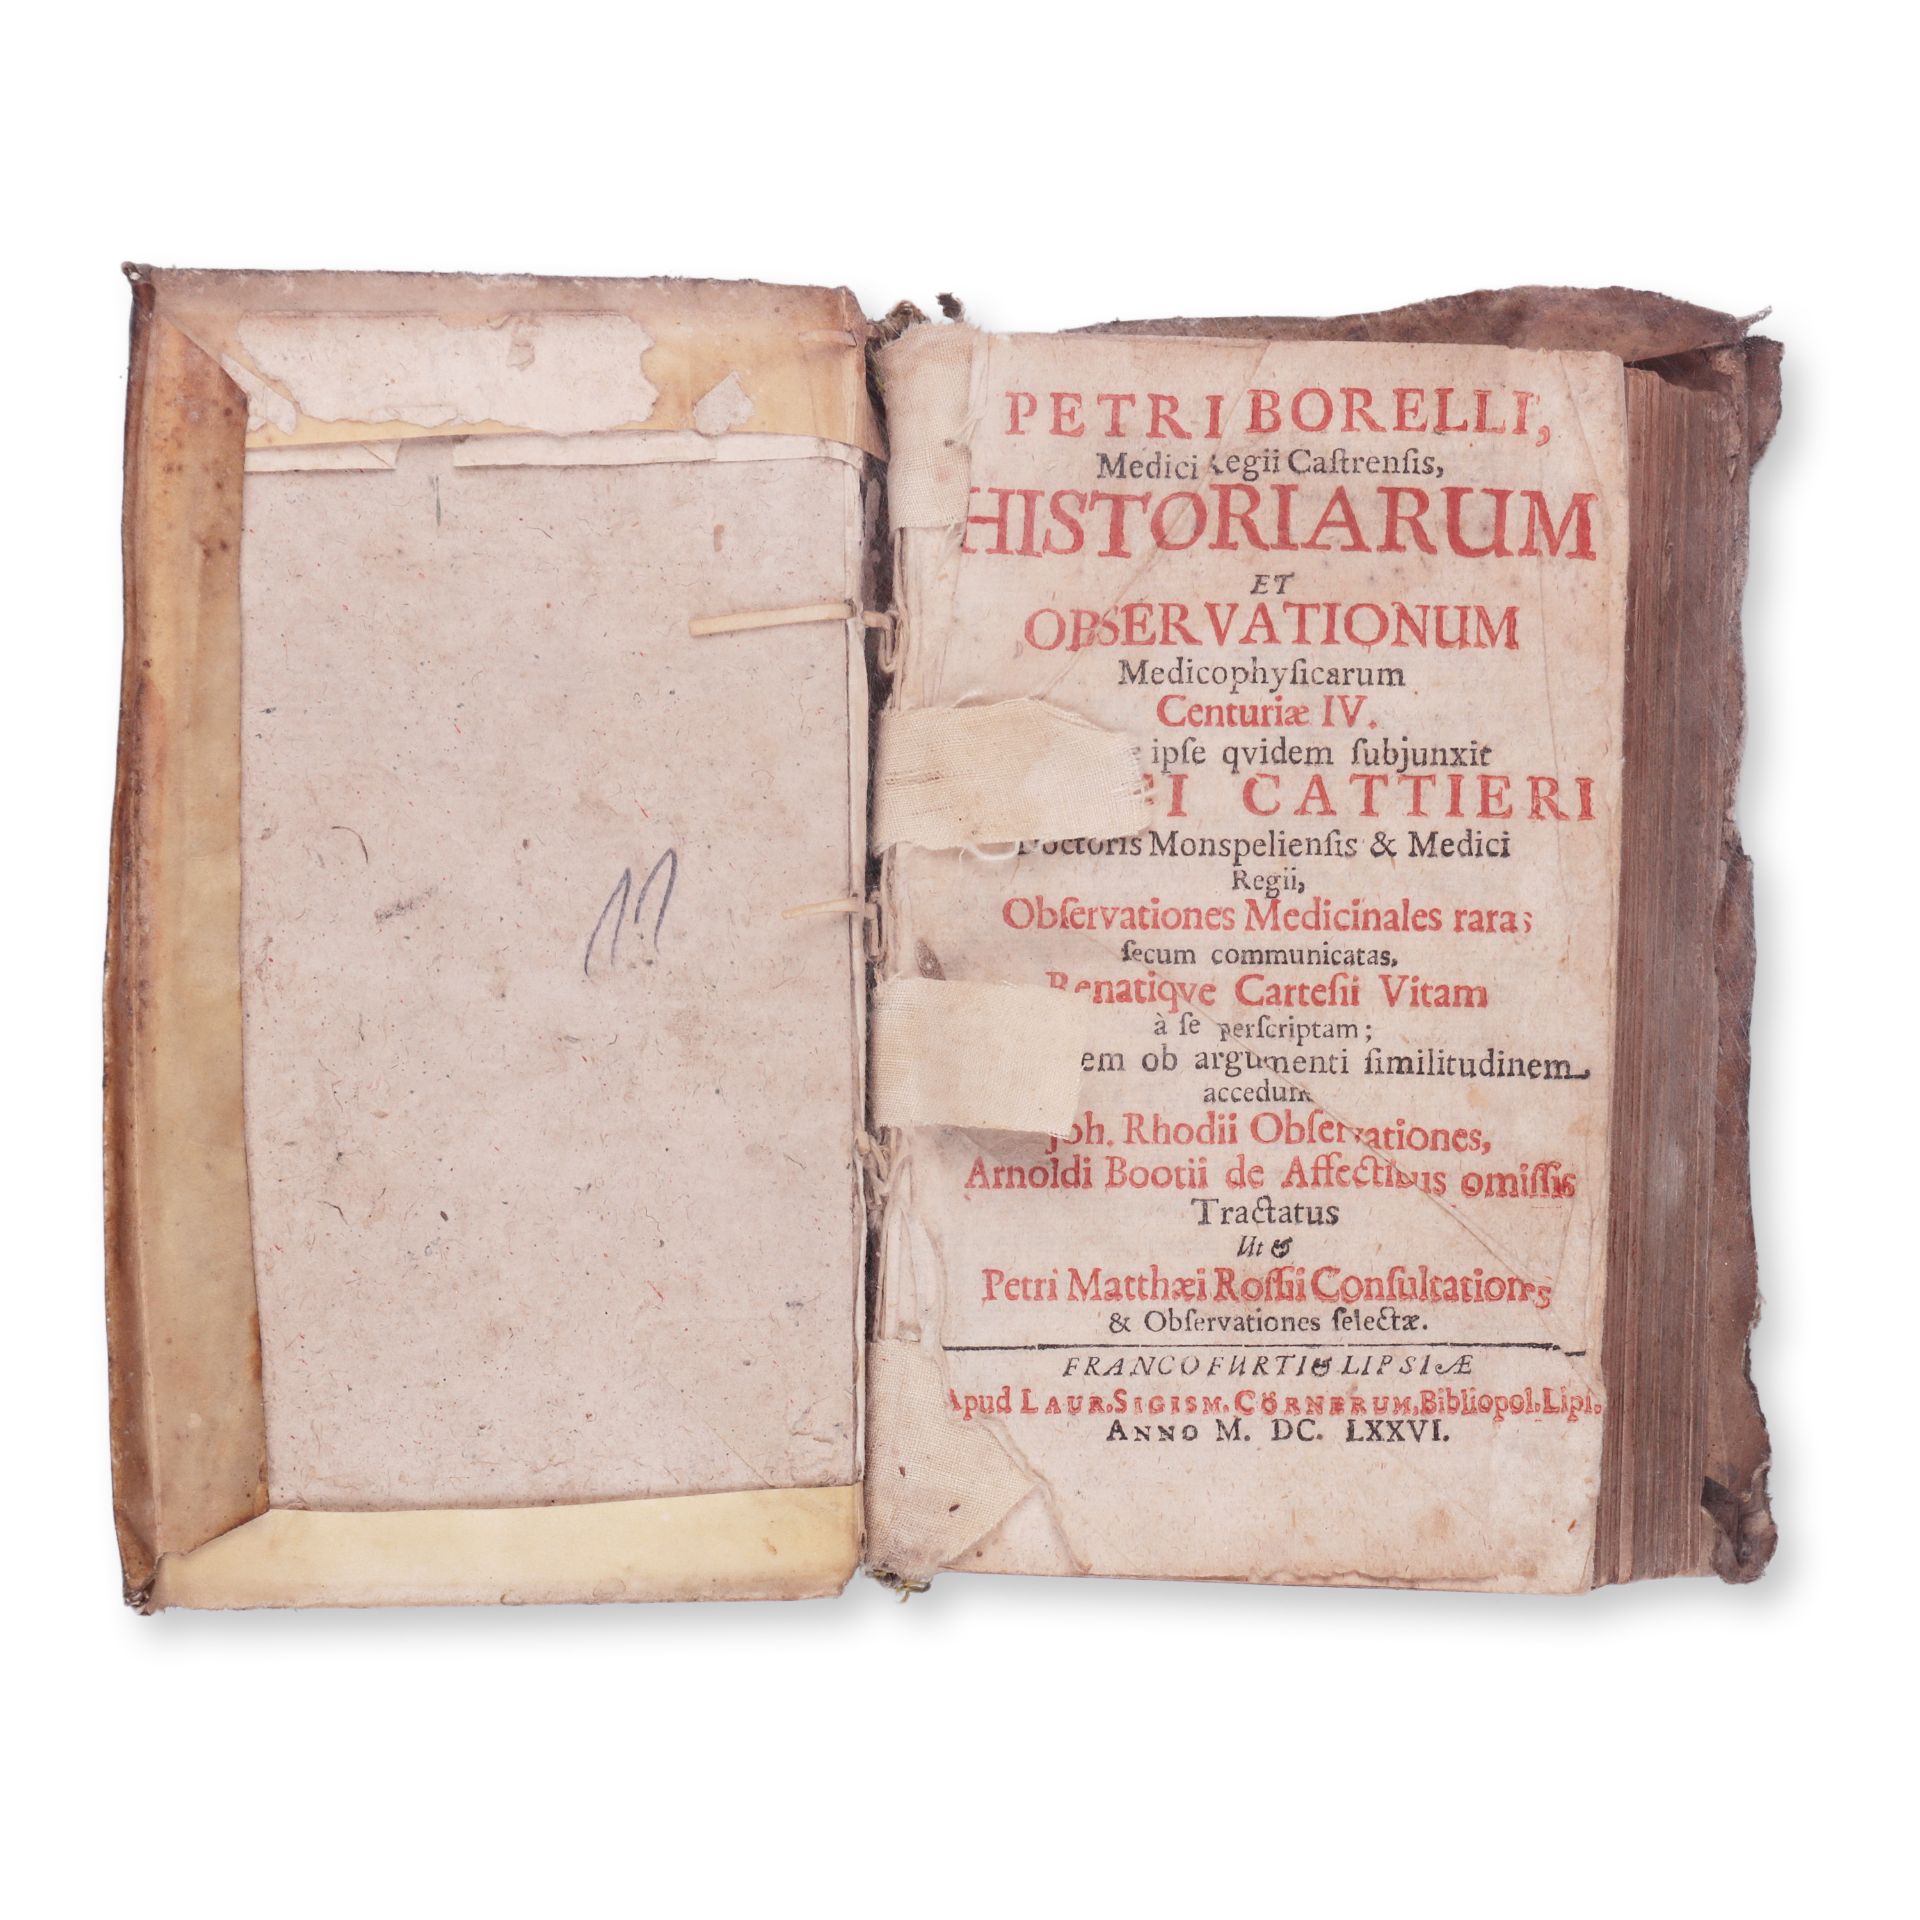 PETRI BORELLI,
Medici Regii Caſtrenſis,
HISTORIARUM
ET
OBSERVATIONUM
Medicophyſicarum
Centuriæ IV.
ipſe qvidem ſubjunxit
CATTIERI
Doctoris Monspelienſis & Medici
Regii,
Obſervationes Medicinales rara;
ſecum communicatas,
Renatiqve Carteſii Vitam
à ſe perſcriptam;
ob argumenti ſimilitudinem
accedunt
Joh. Rhodii Obſervationes,
Arnoldi Bootii de Affectibus omiſſis
Tractatus
Ut &
Petri Matthæi Roſſii Conſultationes
& Obſervationes ſelectæ.
FRANCOFURTI & LIPSIÆ
Apud LAUR. SIGISM. CÖRNERUM, Bibliopol. Lipſ.
ANNO M. DC. LXXVI.